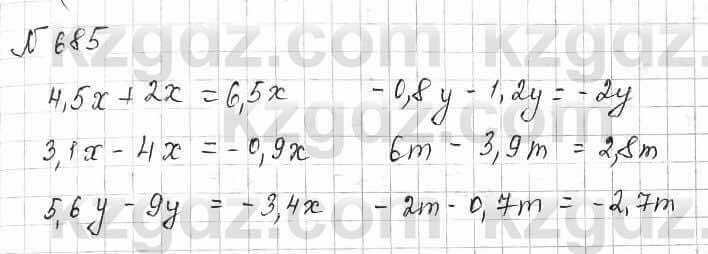 № 685
4,5x + 2x = 6,5x     -0,8y - 1,2y = -2y
3,1x - 4x = -0,9x     6m - 3,9m = 2,8m
5,6y - 9y = -3,4x     -2m - 0,7m = -2,7m
kzgdz.com